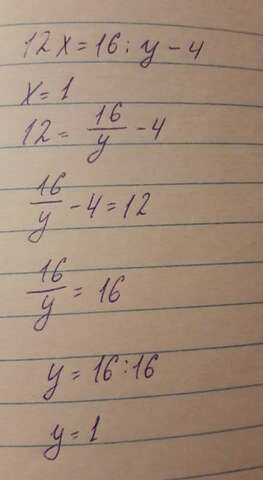 12x=16:y-4
x=1
12=16/y-4
16/y-4=12
16/y=16
y=16:16
y=1